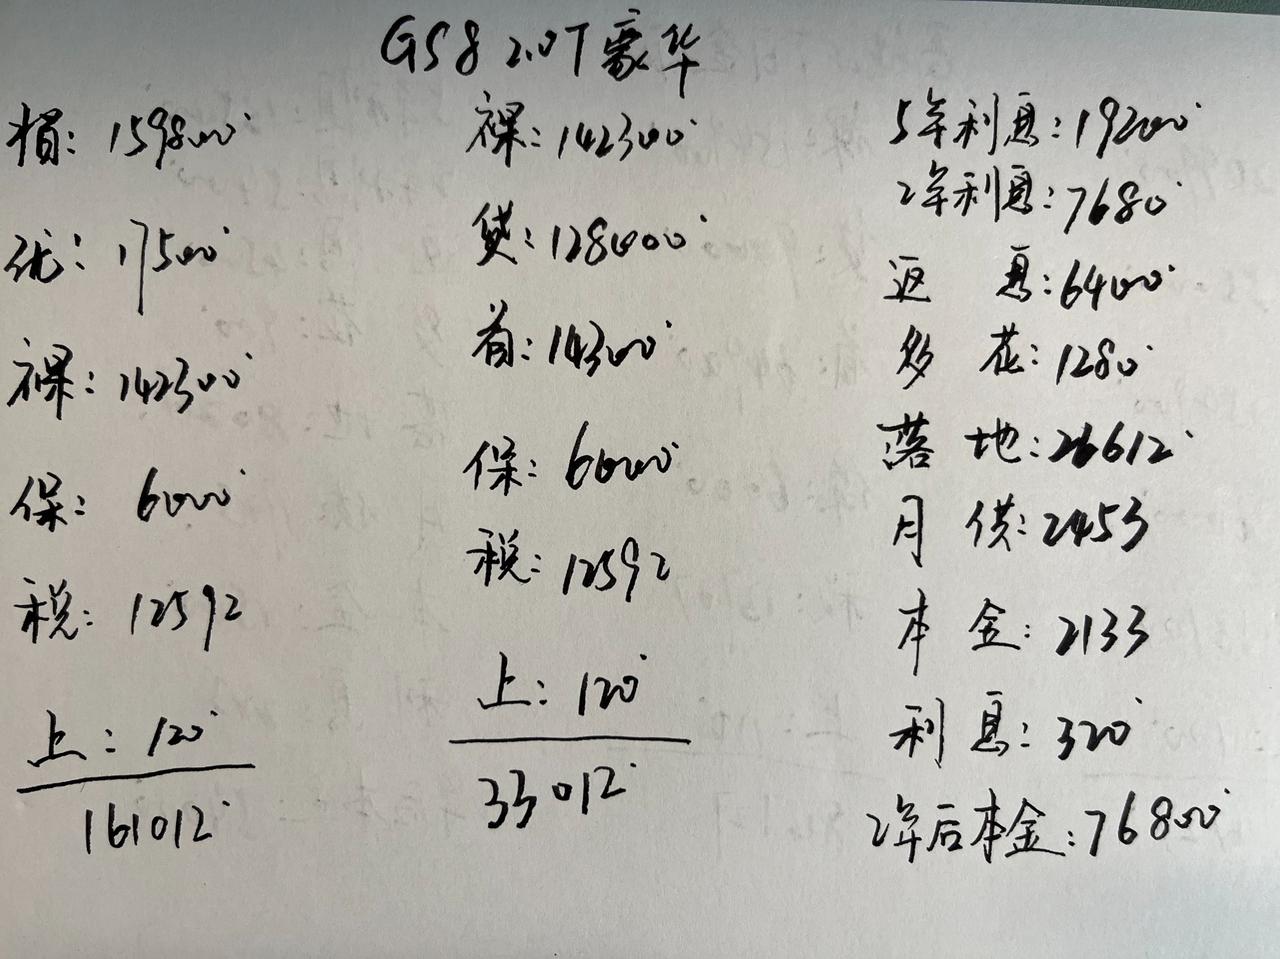 GS8 2.0T豪华
指: 159800
优: 17500
裸: 142300
保: 6000
税: 12592
上: 120
161012
裸: 142300
贷: 128000
首: 14300
保: 6000
税: 12592
上: 120
33012
5年利息: 19200
2年利息: 7680
返息: 6400
多花: 1280
落地: 26612
月供: 2453
本金: 2133
利息: 320
2年后本金: 76800